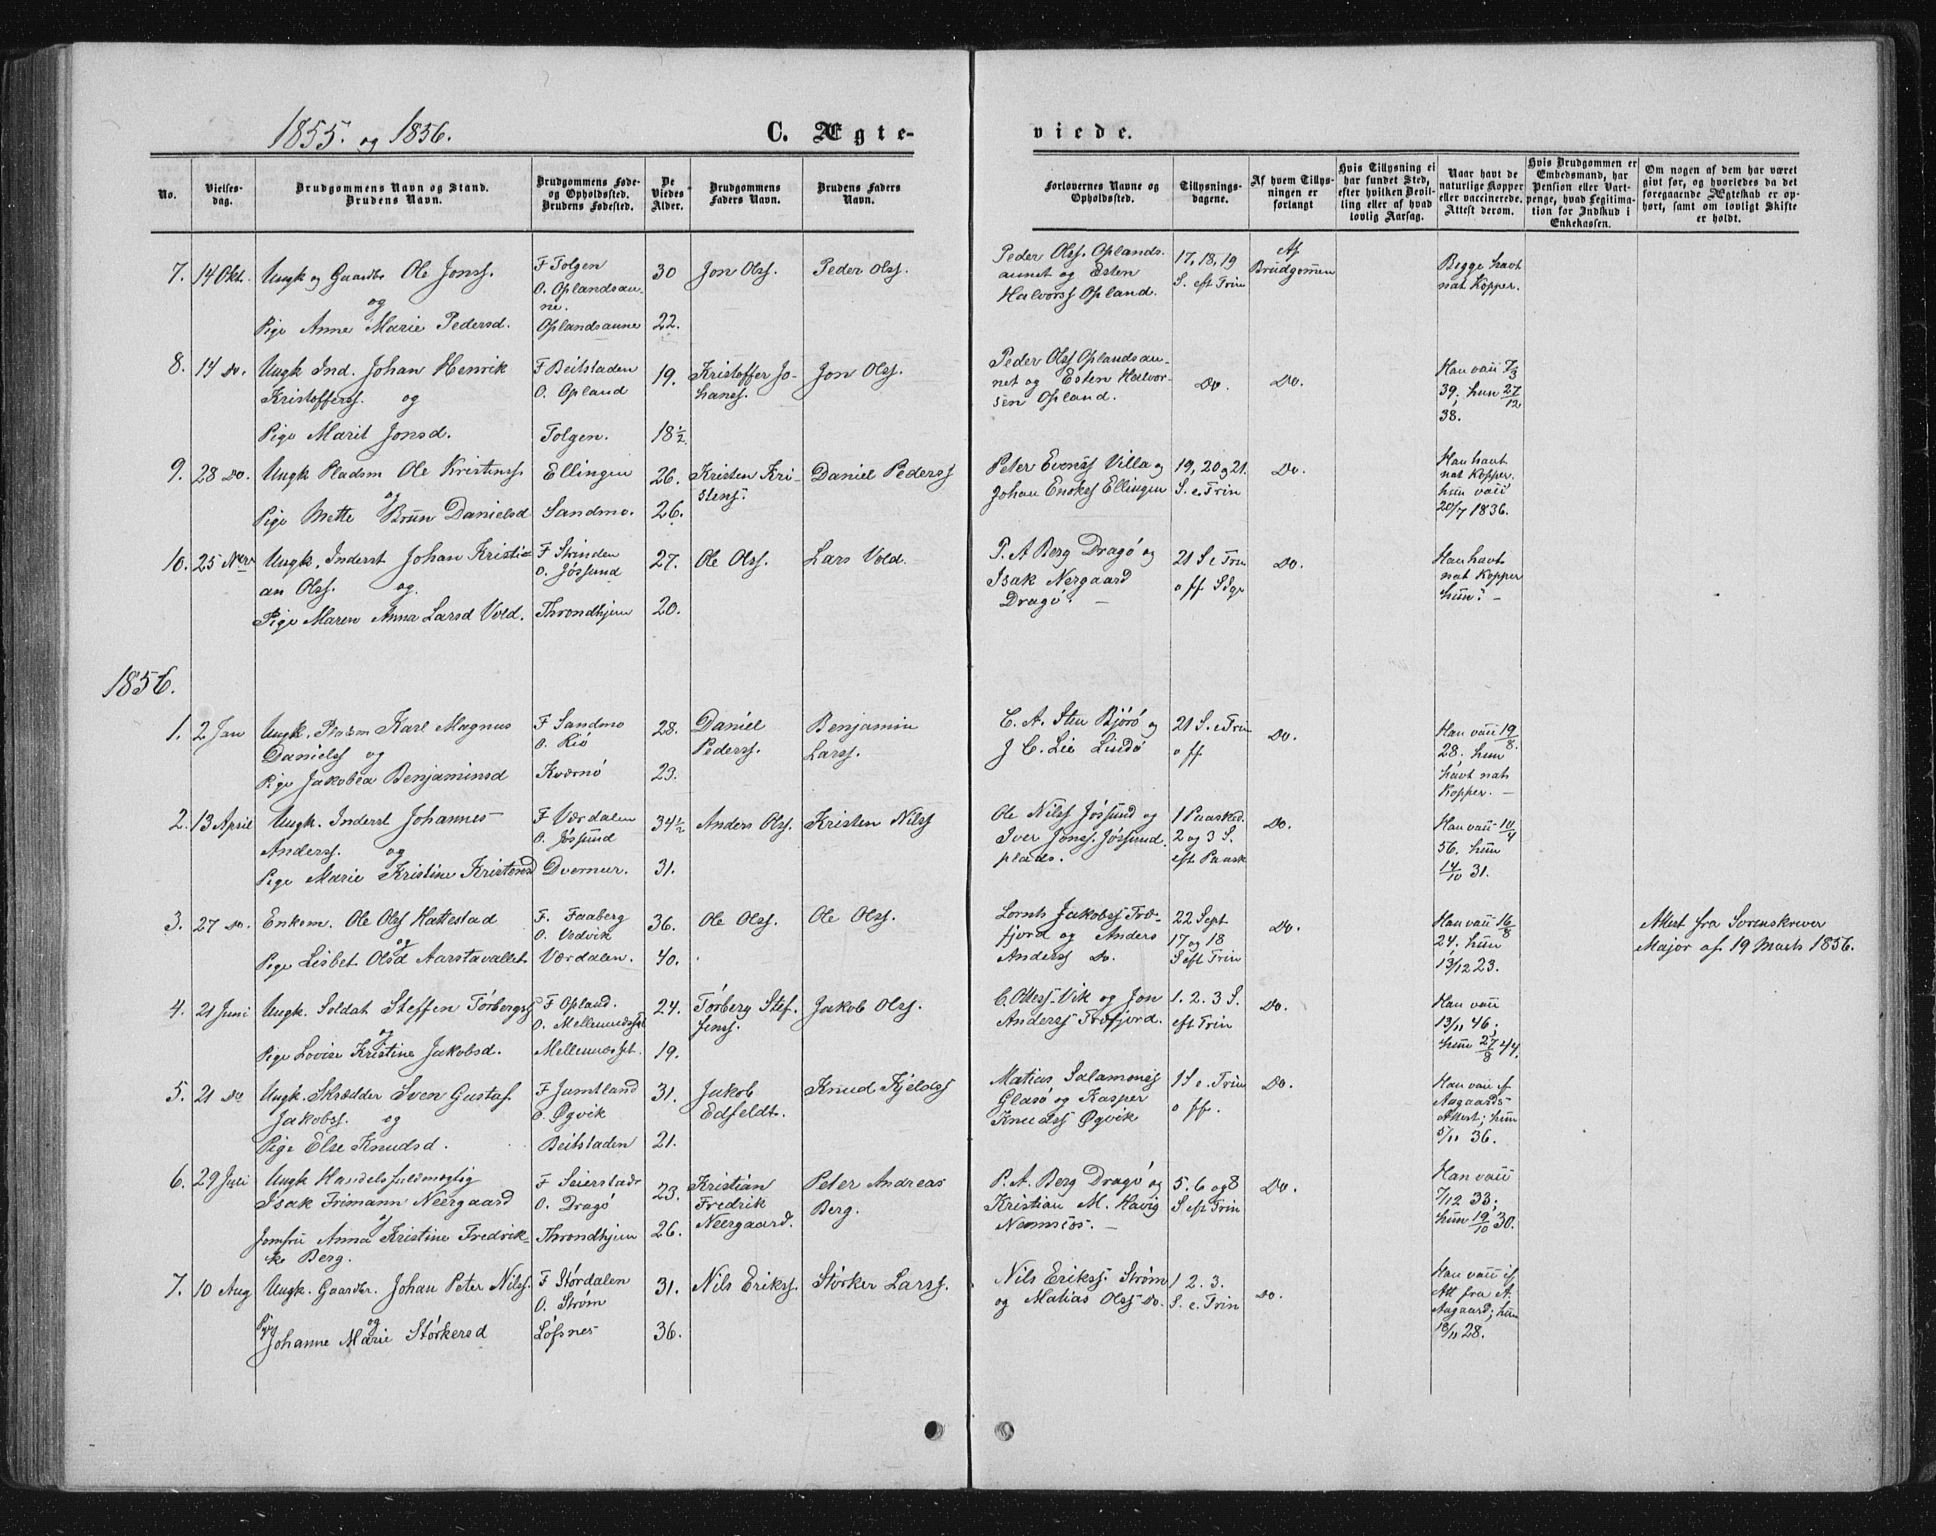 1855. og 1856.
C. Ægte-
viede.
No.
Vielses-
dag.
Brudgommens Navn og Stand.
Brudens Navn.
Brudgommens Føde-
og Opholdssted.
Brudens Fødested.
De
Viedes
Alder.
Brudgommens
Faders Navn.
Brudens Faders
Navn.
Forlovernes Navne og
Opholdssted.
Tillysnings-
dagene.
Af hvem Tillys-
ningen er
forlangt
Hvis Tillysning ei
har fundet Sted,
efter hvilken Bevil-
ling eller af hvad
lovlig Aarsag.
Naar havt de
naturlige Kopper
eller vaccinerede.
Attest derom.
Hvis Brudgommen er
Embedsmand, har
Pension eller Vart-
penge, hvad Legitima-
tion for Indskud i
Enkekassen.
Om nogen af dem har været
givt før, og hvorledes da det
foregaaende Ægteskab er op-
hørt, samt om lovligt Skifte
er holdt.
7. 14 Okt. Ungk og Gaardbr Ole Jonss.
og
Pige Anne Marie Pedersd.
F Tolgen
O. Oplandsau-
ne.
Oplandsaune
30
22.
Jon Olss.
Peder Olss.
Peder Olss. Oplands
aunet og Esten
Halvorss Opland.
17, 18, 19
S. eft Trin
Af
Brudgommen
Begge havt
nat Kopper.
8. 14 Do. Ungk Ind. Johan Henrik
Kristofferss. og
Pige Marit Jonsd.
F Beitstaden
O. Opland
Tolgen.
19.
18 1/2
Kristoffer Jo-
hans.
Jon Olss.
Peder Olss Oplandsau-
net og Esten Halvor-
sen Opland.
Do.
Do.
Han vacc 7/3
39; hun 27/12
38.
9. 28 Do. Ungk Pladsm Ole Kristenss
og
Pige Mette Bruun Danielsd
Ellingen
Sandmo.
26.
26.
Kristen Kri-
stens.
Daniel Pederss
Peter Evenss Villa og
Johan Enokss Ellingen
19, 20 og 21.
S. e. Trin
Do.
Han havt
nat Kopper.
hun vacc
20/7 1836.
10. 25 Novr Ungk. Inderst Johan Kristi-
an Olss. og
Pige Maren Anna Larsd Vold.
F Strinden
O. Jøssund
Throndhjem
27.
20.
Ole Olss.
Lars Vold.
P. A Berg Dragø og
Isak Nergaard
Dragø. —
21 S e Trin
o ff Sdge
Do.
Han havt
nat Kopper
hun? —
1856.
1. 2 Jan Ungk. Pladsm Karl Magnus
Danielss og
Pige Jakobea Benjaminsd
F Sandmo
O. Riø
Kværnø
28.
23.
Daniel
Pederss.
Benjamin
Larss.
C. A. Sten Bjørø og
J C. Lie Lindø
21 S. e Trin
o ff
Do.
Han vacc 19/8
28; hun
havt nat
Kopper. —
2. 13 April Ungk. Inderst Johannes
Anderss. og
Pige Marie Kristine Kristensd
F Værdalen
O. Jøssund
Dvernes.
34 1/2
31.
Anders Olss.
Kristen Nilss
Ole Nilss Jøssund og
Iver Jonss. Jøssund
plads.
1 Paasked.
2 og 3 S.
eft Paask
Do.
Han vacc 10/4
56. hun
14/10 31.
3. 27 Do. Enkem. Ole Olss Hattestad
og
Pige Lisbet Olsd Aarstavallet
F. Faaberg
O. Vedvik
Værdalen.
36.
40.
Ole Olss.
Ole Olss.
Lornts Jakobss Træ-
fjord og Anders
Anderss Do.
22 Sept
17 og 18
S eft Trin
Do.
Han vacc 16/8
24; hun
13/12 23.
Attest fra Sorenskriver
Major af 19 Marts 1856.
4. 21 Juni Ungk. Soldat Steffen Torbergss
og
Pige Lovise Kristine Jakobsd.
F Opland.
O. Mellemnesset
Mellemnesset.
24.
19.
Torberg Stef-
fenss.
Jakob Olss.
C. Otterss. Vik og Jon
Anderss Træfjord.
1. 2. 3 S.
eft Trin
Do.
Han vacc
13/11 46;
hun 27/8 44.
5. 21 Do Ungk. Skrædder Sven Gustaf
Jakobss. og
Pige Else Knudsd.
F Jæmtland
O. Øgvik
Beitstaden
31.
21.
Jakob
Edfeldt.
Knud Kjeldss
Matias Salamonss
Glasø og Kasper
Knudss Øgvik
1 S e. Trin
o ff.
Do.
Han vacc if
Aagaards
Attest; hun
5/11 36.
6. 29 Juli Ungk Handelsfuldmægtig
Isak Frimann Neergaard
og
Jomfru Anna Kristine Fredrik-
ke Berg.
F Seierstadr
O. Dragø
Throndhjem
23.
26.
Kristian
Fredrik
Neergaard.
Peter Andreas
Berg.
P. A. Berg Dragø og
Kristian M. Havig
Namsos. —
5. 6 og 8
S eft Trin
Do.
Han vacc
7/12 33;
hun 19/10 30.
7. 10 Aug Ungk. Gaardbr. Johan Peter Nilss.
og
Pige Johanne Marie Størkersd
F Størdalen
O. Strøm
Løfsnes
31.
36.
Nils Erikss.
Størker Larss.
Nils Erikss. Strøm
og Matias Olss Do.
1 2. 3.
S. e. Trin
Do.
Han vacc if
Att fra A.
Aagaard; hun
18/11 28.